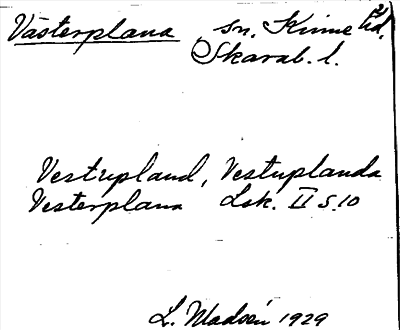 Västerplana sn. Kinne hd.
Skarab. l.
Vestupland, Vestuplanda
Vesterplana Lsk. II S.10
L. Madsén 1929